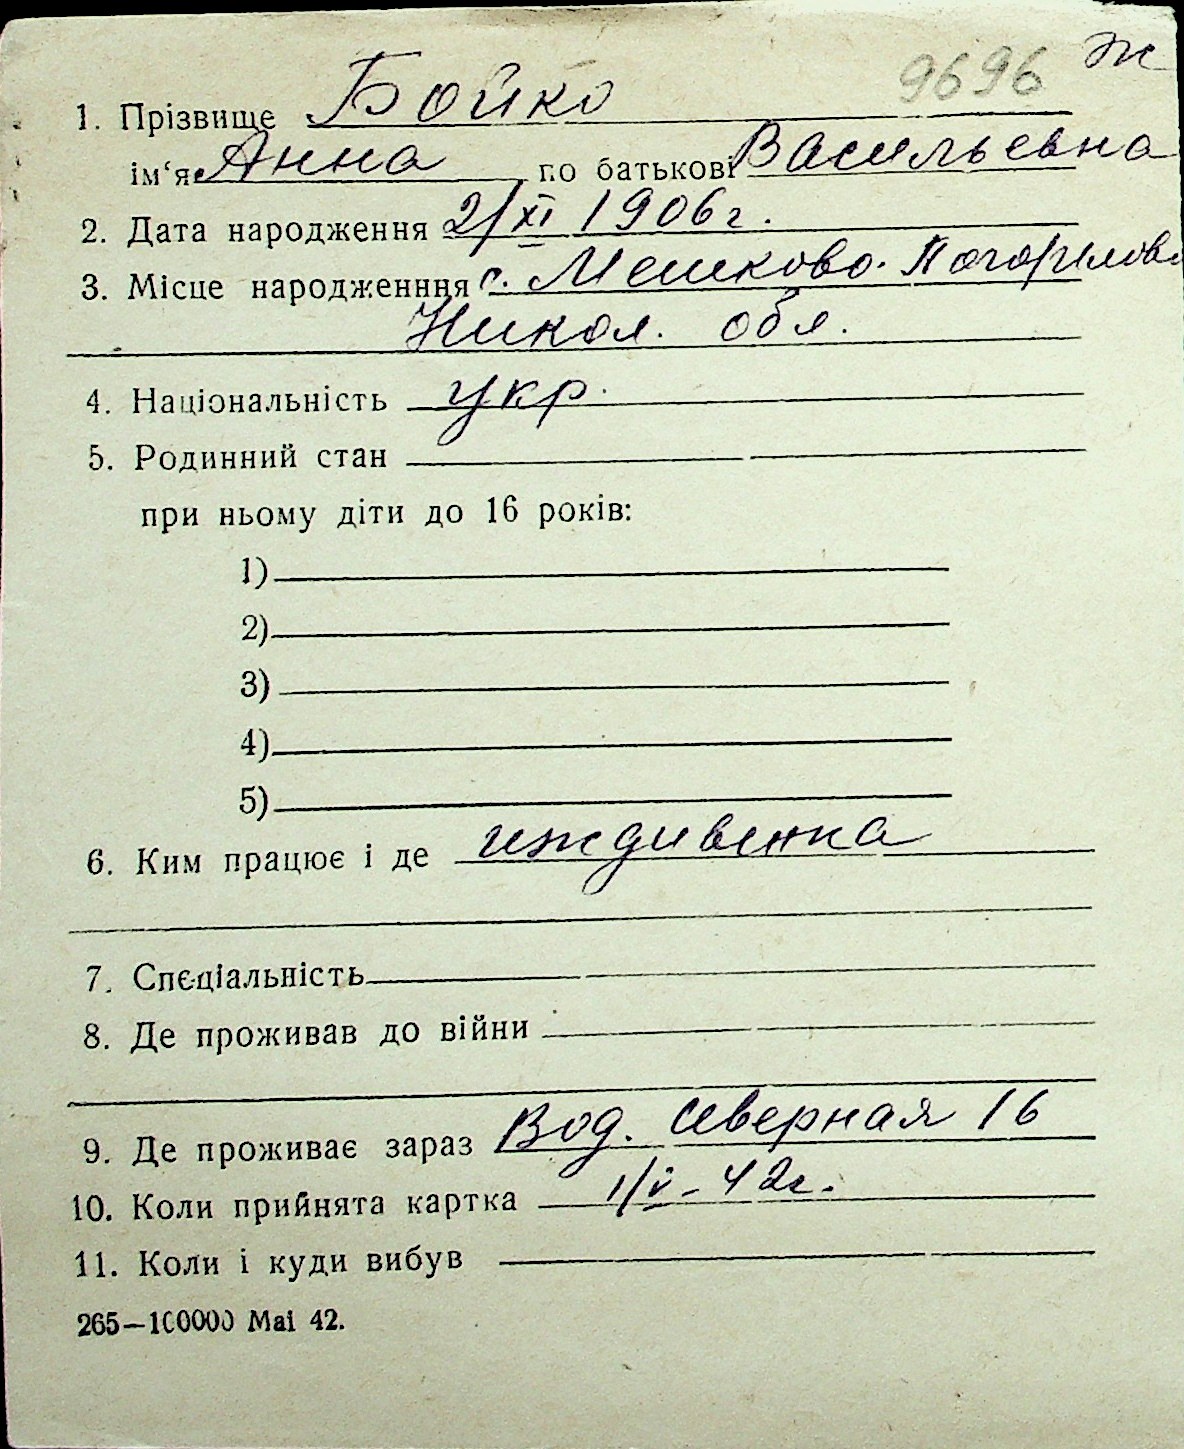 9696 Ж
1. Прізвище Бойко
ім‘я Анна по батькові Васильевна
2. Дата народження 2/XI 1906 г.
3. Місце народженння с. Мешково. Погорилово
Никол. обл.
4. Національність укр.
5. Родинний стан
при ньому діти до 16 років:
1)
2)
3)
4)
5)
6. Ким працює і де иждивенка
7. Спєціальність
8. Де проживав до війни
9. Де проживає зараз Вод. Северная 16
10. Коли прийнята картка 1/V - 42г.
11. Коли і куди вибув
265—100000 Mai 42.